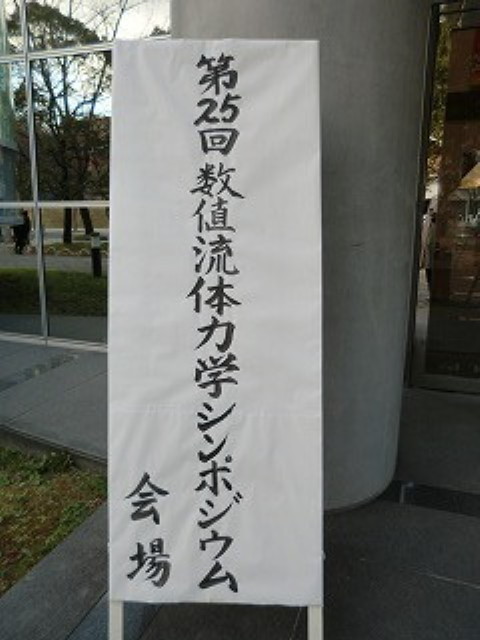 第25回数値流体力学シンポジウム
会場